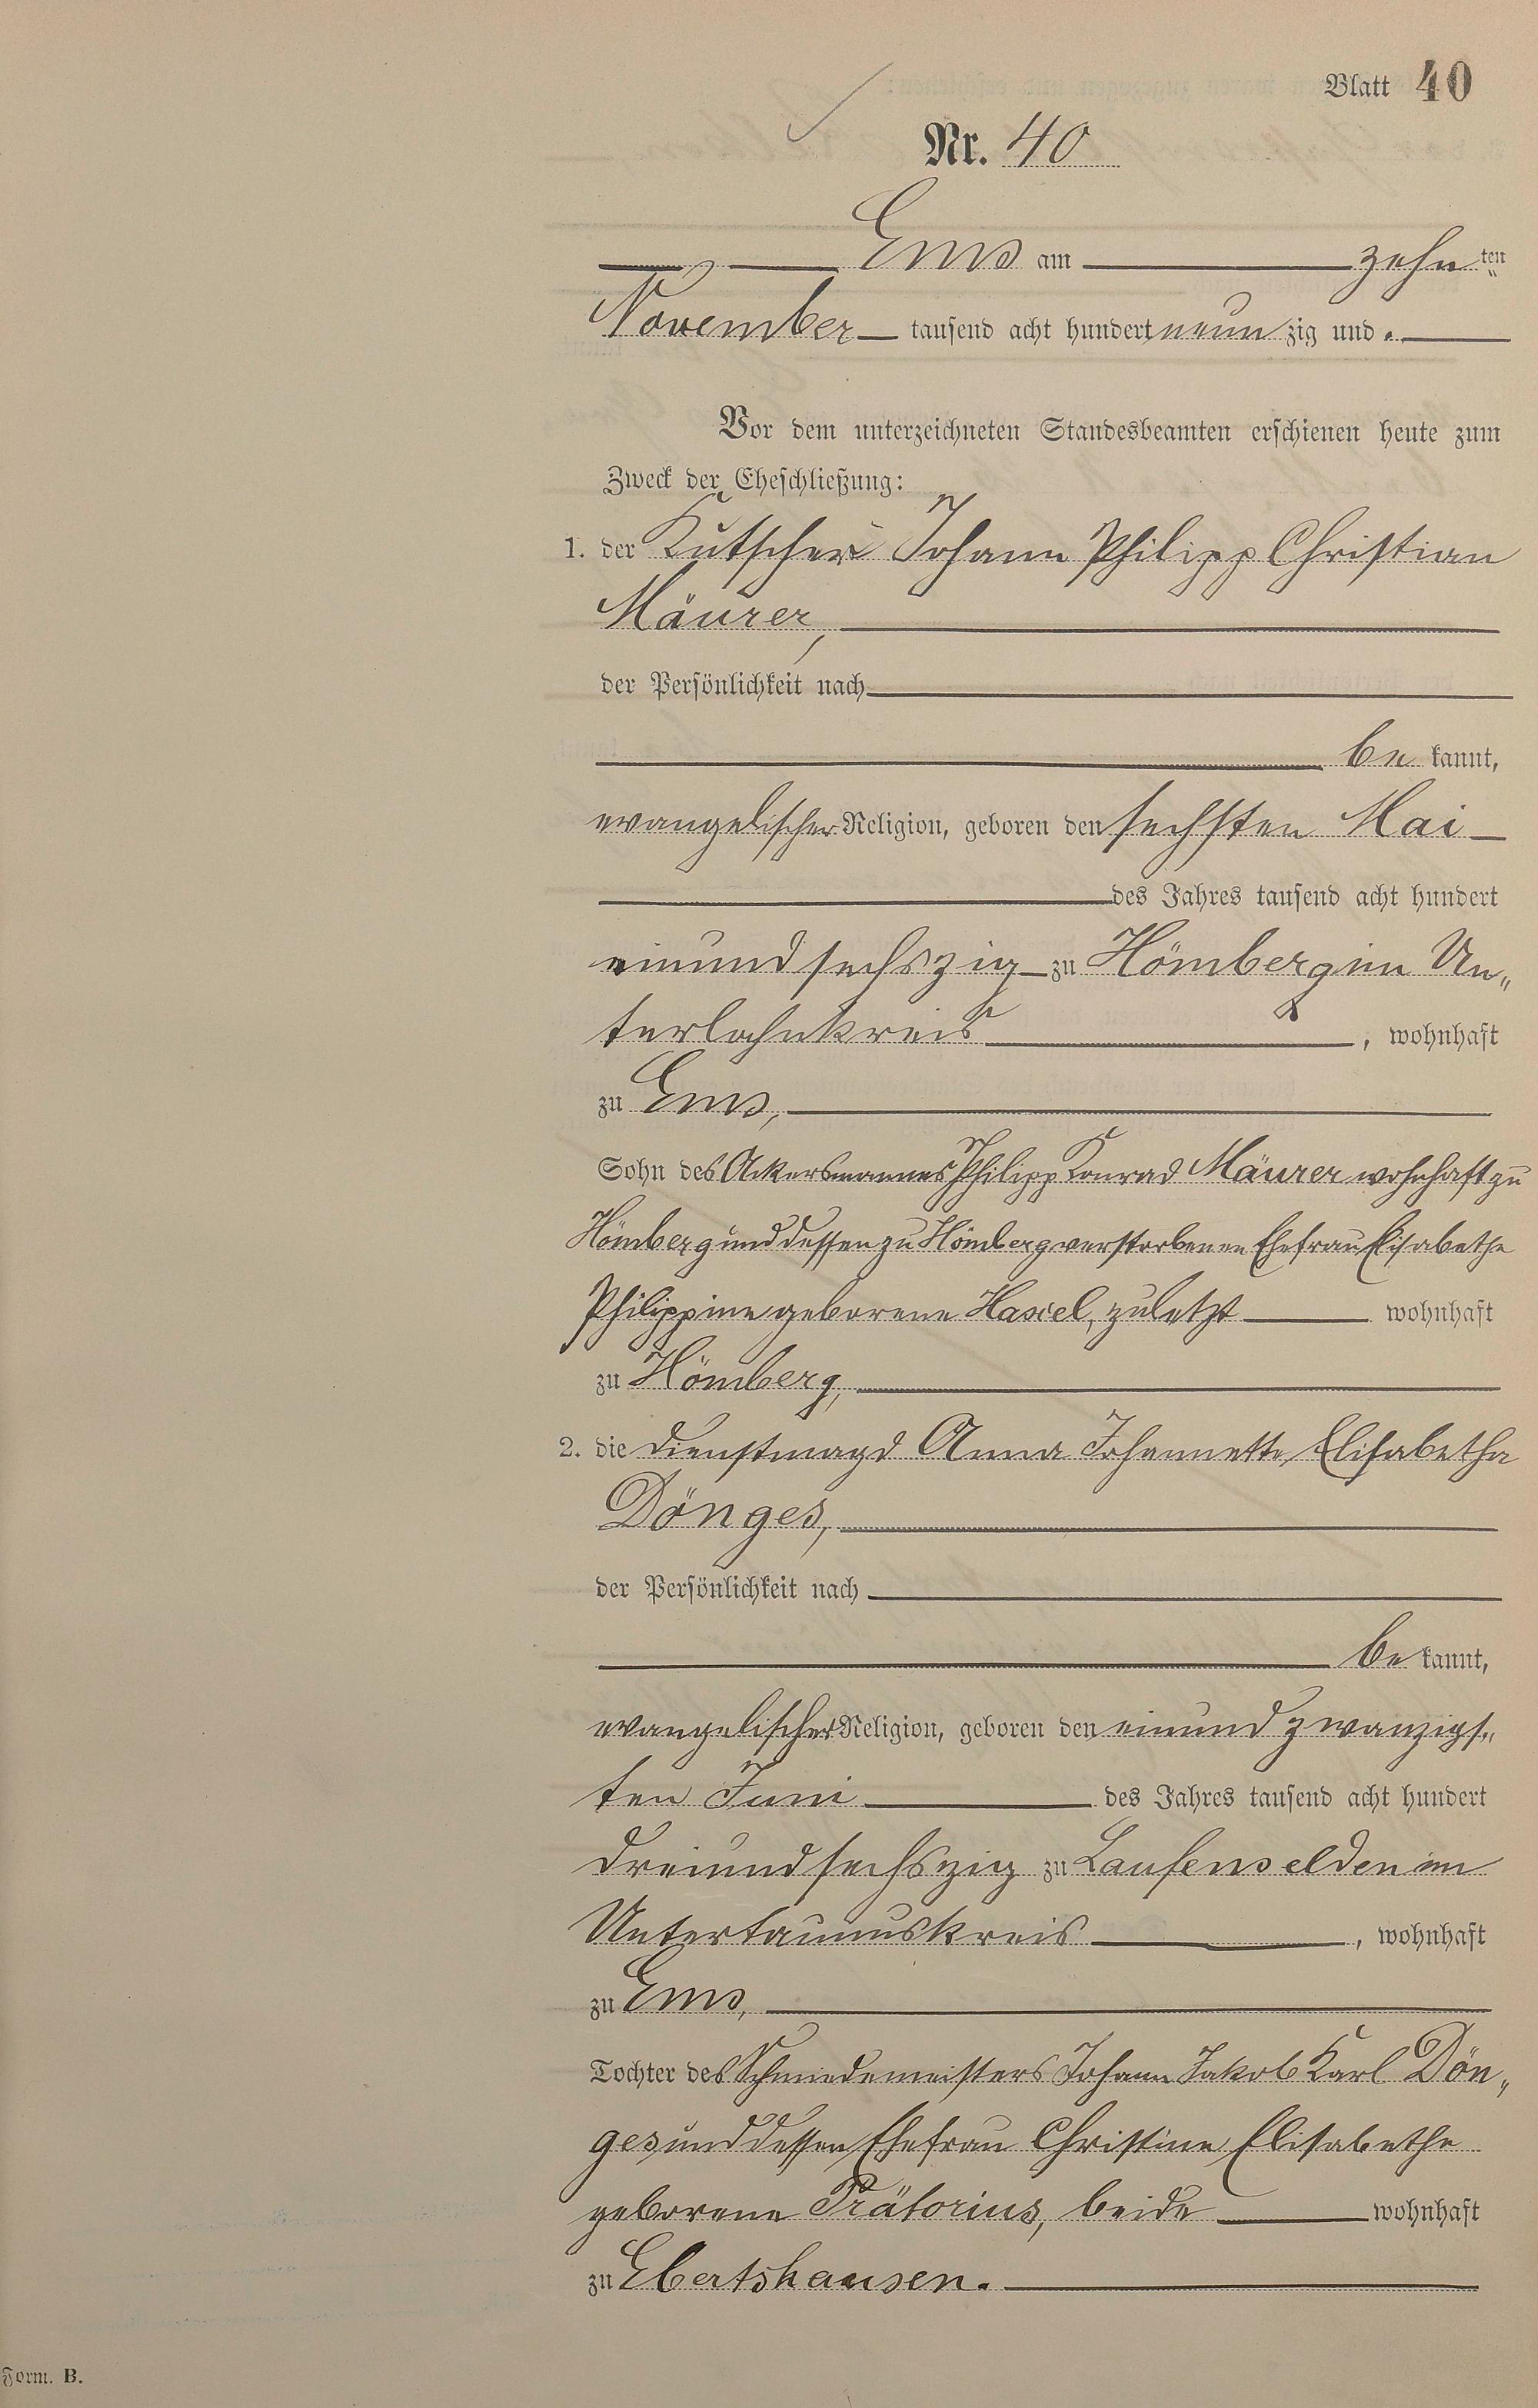 Blatt 40
Nr. 40
Ems am zehnten
November tausend acht hundert neunzig und.
Vor dem unterzeichneten Standesbeamten erschienen heute zum
Zweck der Eheschließung:
1. der Kutscher Johann Philipp Christian
Mäurer,
der Persönlichkeit nach
bekannt,
evangelischer Religion, geboren den sechsten Mai
des Jahres tausend acht hundert
einundsechszig zu Hömberg im Un„
terlahnkreis, wohnhaft
zu Ems,
Sohn des Ackersmannes Philipp Konrad Mäurer wohnhaft zu
Hömberg und dessen zu Hömberg verstorbenen Ehefrau Elisabethe
Philippine geborene Hasxel, zuletzt wohnhaft
zu Hömberg,
2. die Dienstmagd Anna Johannette Elisabetha
Dönges,
der Persönlichkeit nach
bekannt,
evangelischer Religion, geboren den einundzwanzigs„
ten Juni des Jahres tausend acht hundert
dreiundsechszig zu Laufenselden im
Untertaunuskreis, wohnhaft
zu Ems,
Tochter des Schmiedemeisters Johann Jakob Karl Dön„
ges und dessen Ehefrau Christine Elisabethe
geborene Prätorius, beide wohnhaft
zu Ebertshausen.
Form. B.